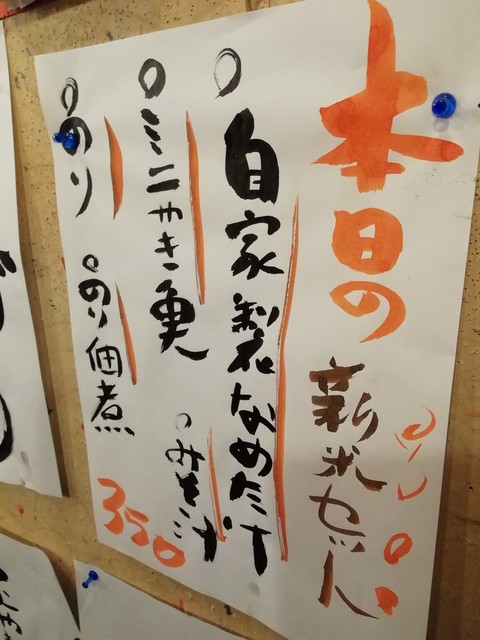 本日の
新米セット
○自家製なめたけ
○ミニやき魚
○みそ汁
○のり
○のり佃煮
350